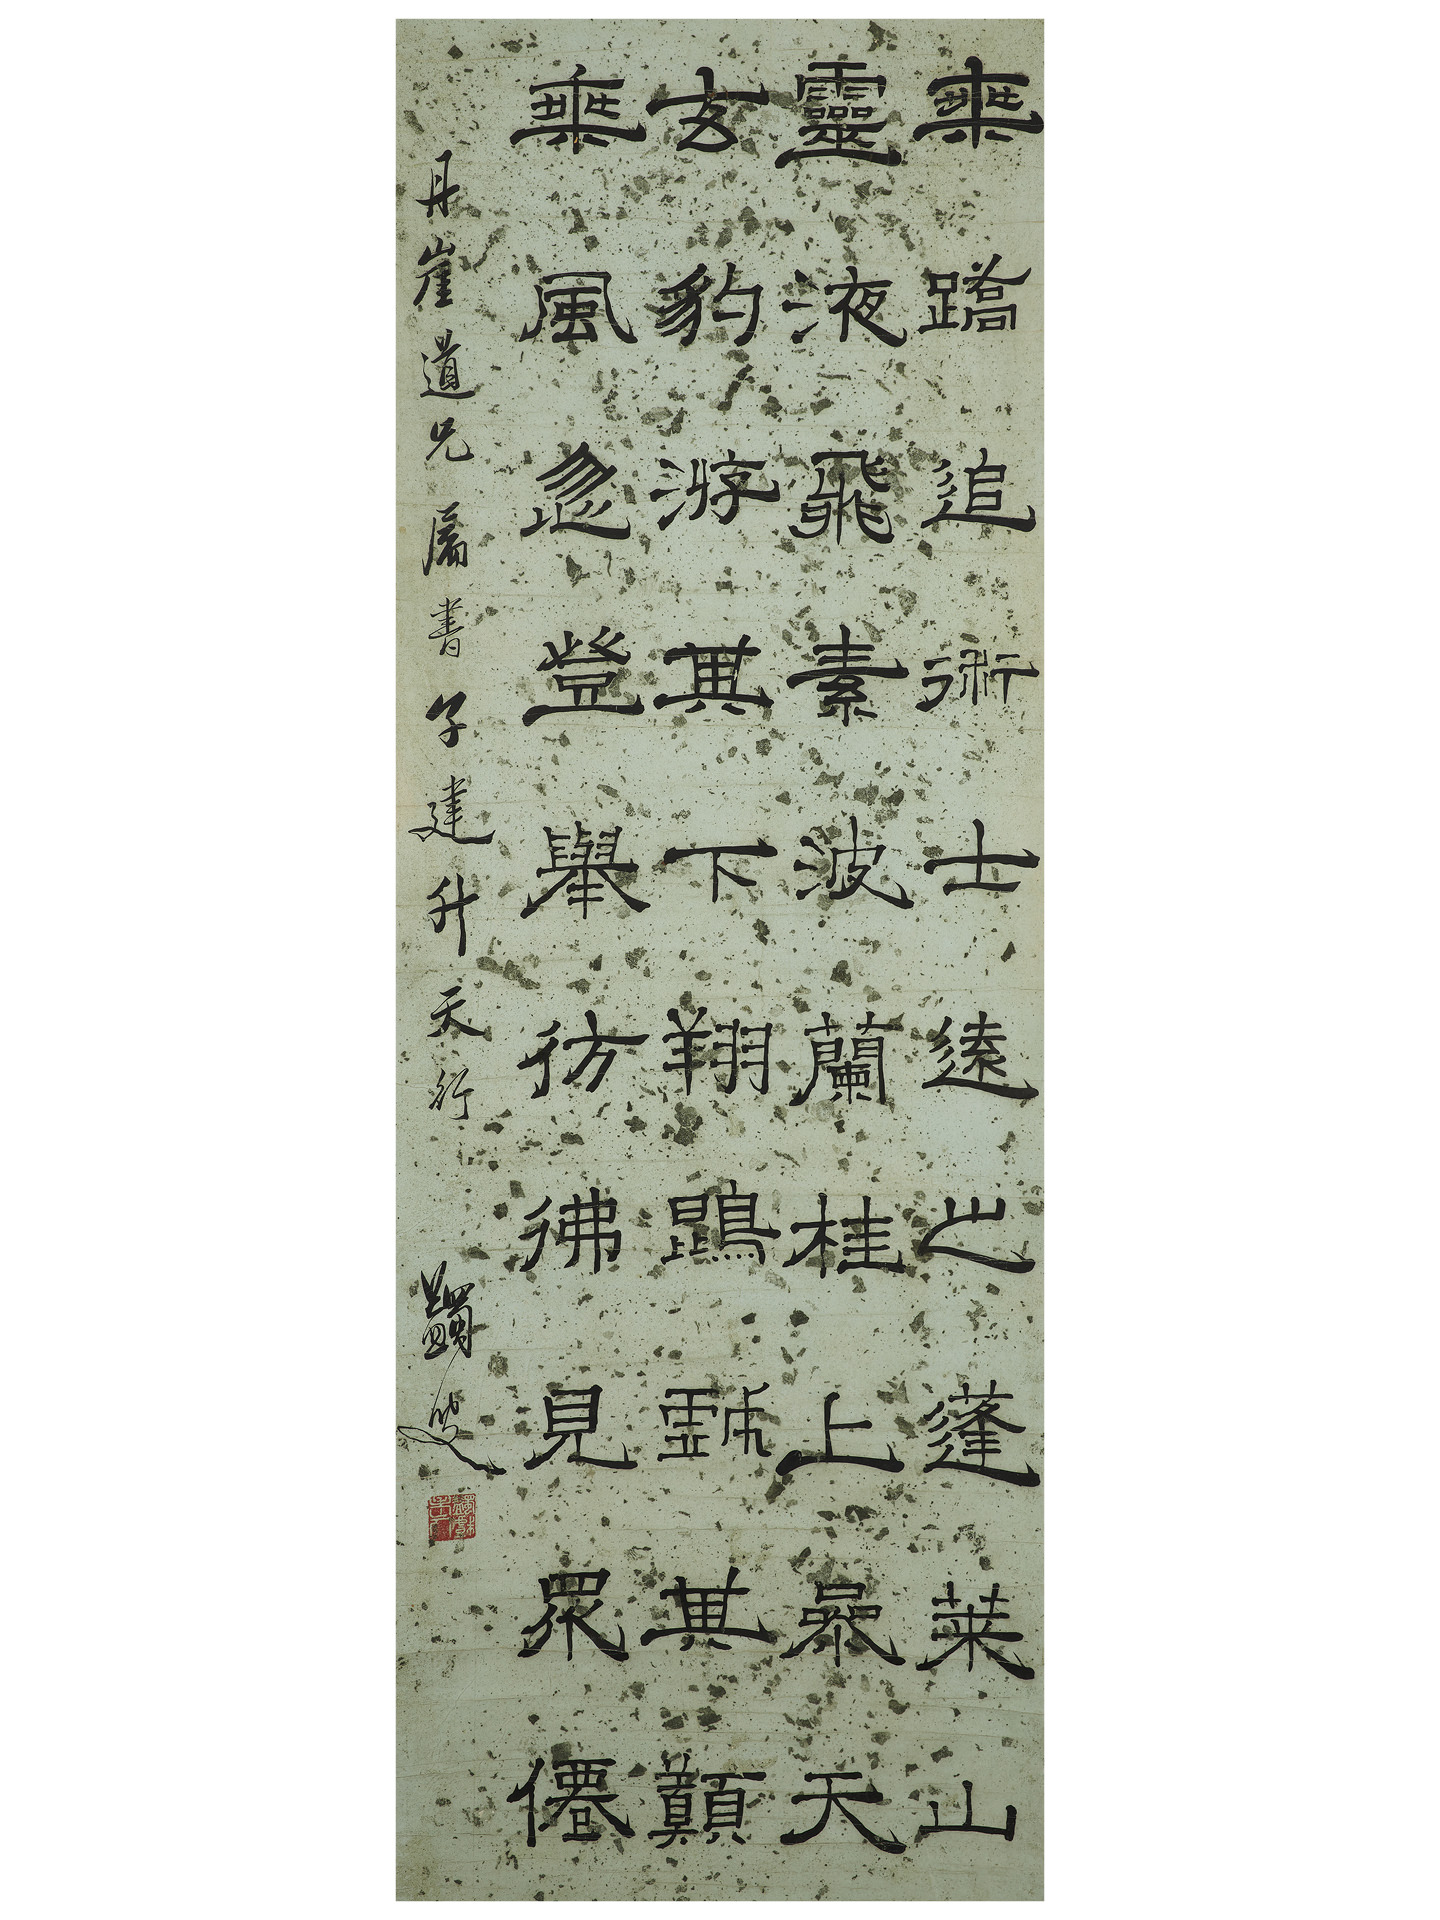 乘蹻追術士遠之蓬萊山
靈液飛素波蘭桂上參天
玄豹游其下翔鵾戲其顛
乘風忽登舉彷彿見眾僊
丹崖道兄屬書子建升天行
蠲叟